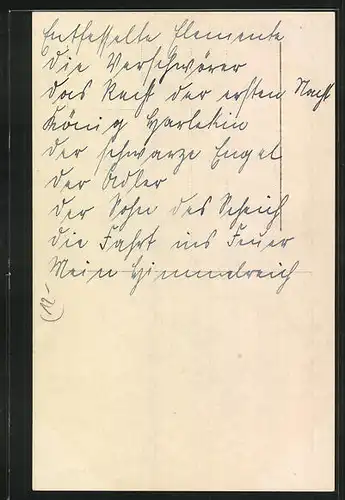 Entfesselte Elemente
die Verschwörer
das Recht der ersten Nacht
König Harlekin
der schwarze Engel
der Adler
der Sohn des Scheich
die Fahrt ins Feuer
Mein Himmelreich
(12-